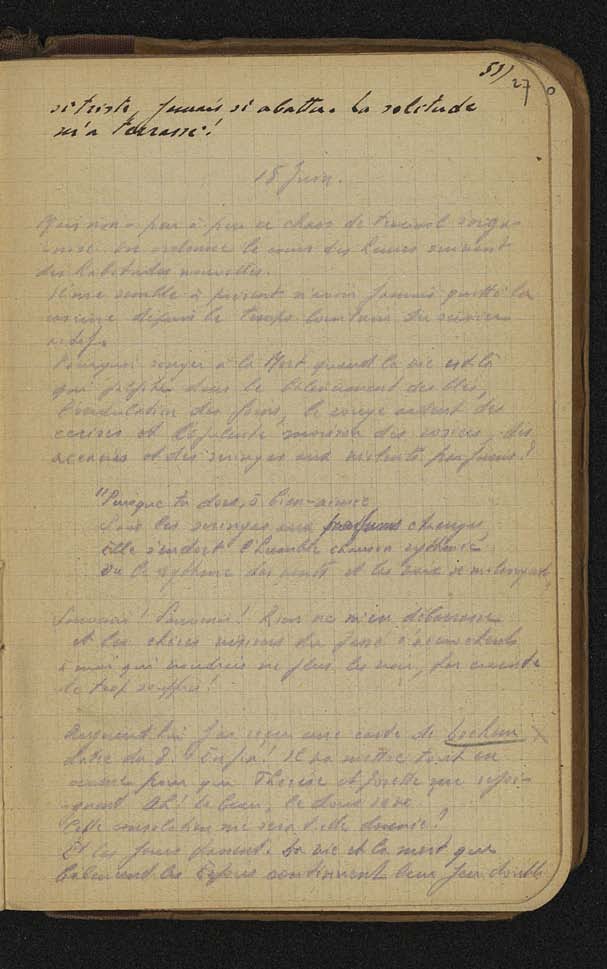 51/
27
si triste, jamais si abattu. La solitude
m'a terrassé!
15 Juin.
peu à peu ce chaos de travail s'orga-
nise. On ordonne le cours des heures suivant
des habitudes nouvelles.
Il me semble à présent n'avoir jamais quitté la
caserne depuis le temps lointain du service
actif.
Pourquoi songer à la Mort quand la vie est là
qui palpite dans le balancement des blés,
l'ondulation des foins, le rouge ardent des
cerises et l'opulente moisson des roses, des
et des seringas aux mitants parfums!
"Puisque tu dors, ô bien-aimée
Sous les seringas aux parfums
Elle s'endort l'humble chanson rythmée
Où le rythme des vents et les voix se
Souvenir! Souvenir! Rien ne m'en débarrasse
Et les chères visions du passé
à moi qui voudrais ne plus les voir, par crainte
de trop souffrir!
Aujourd'hui j'ai reçu une carte de
datée du 8. Enfin! Il va mettre tout en
œuvre pour que Thérèse et Josette me rejoi-
gnent. Ah! le beau, le doux rêve
Cette consolation me sera-t-elle donnée!
Et les jours passent. La vie et la mort qui
balancent les continuent leur jeu double